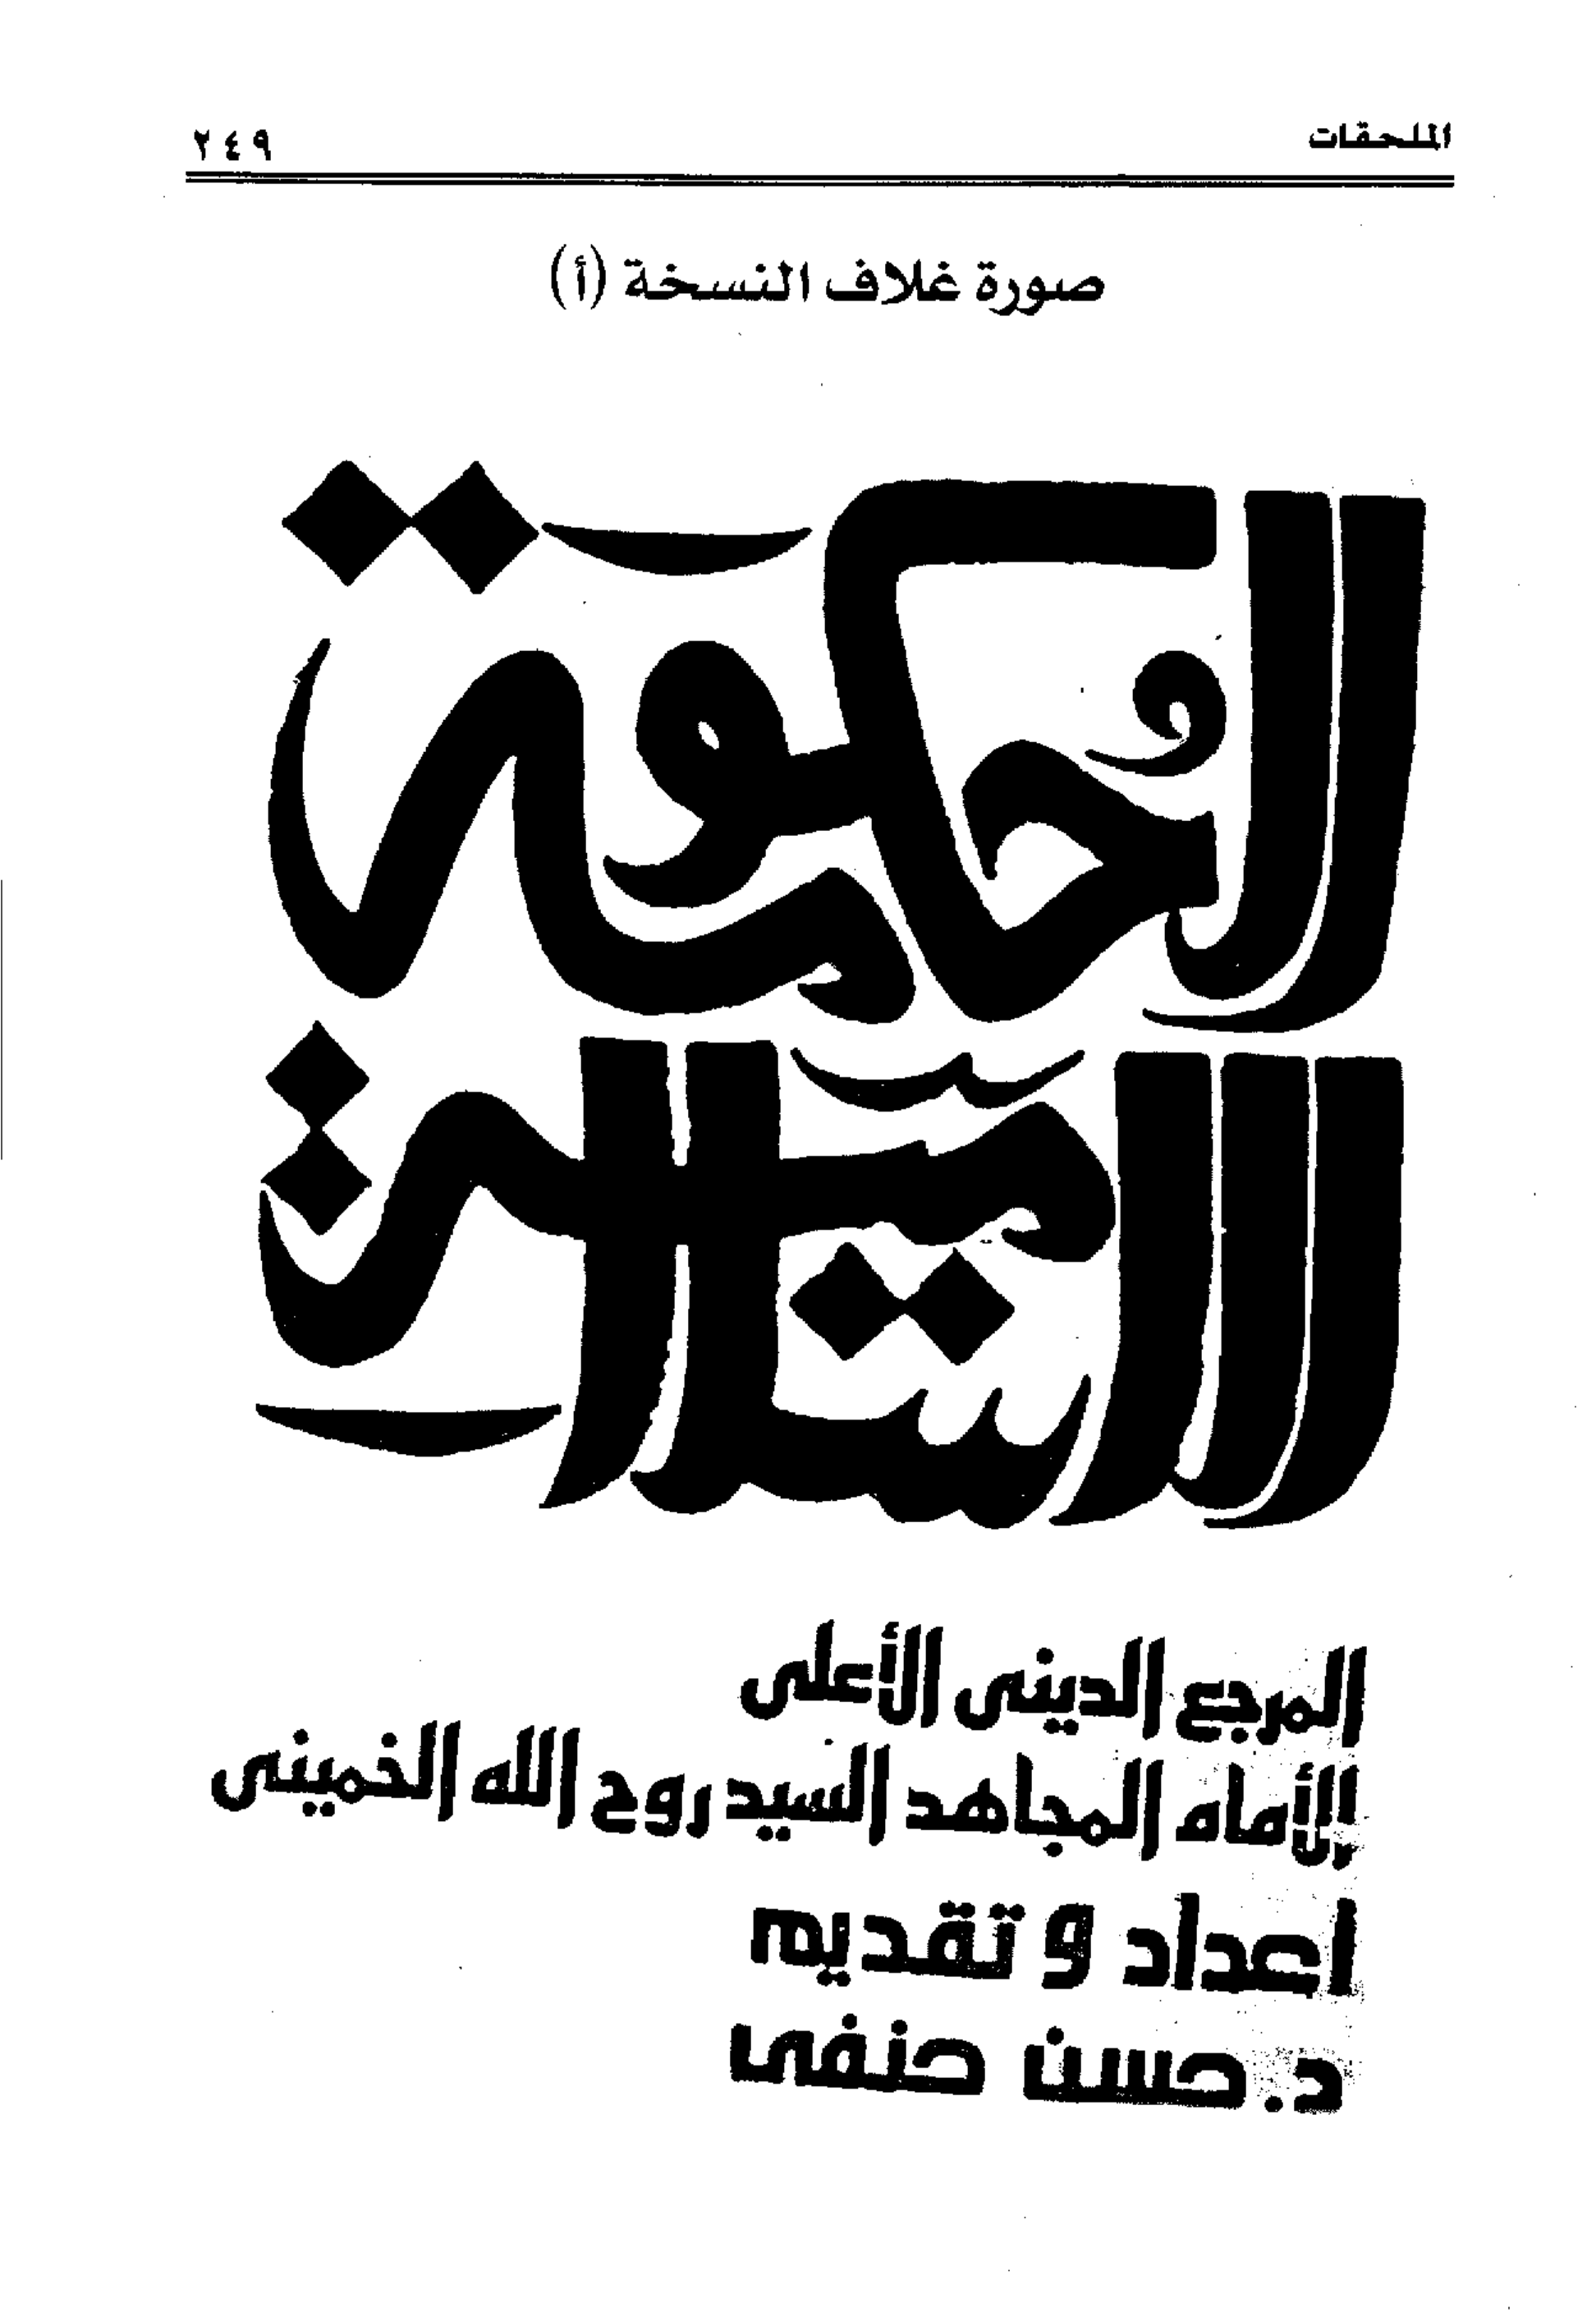 الملحقات
٢٤٩
صورة غلاف النسخة (أ)
الحكومة
الإسلامية
المرجع الدينى الأعلى
الإمام المجاهد السيد روح الله الخمينى
اعداد و تقديم
د. حسن حنفى